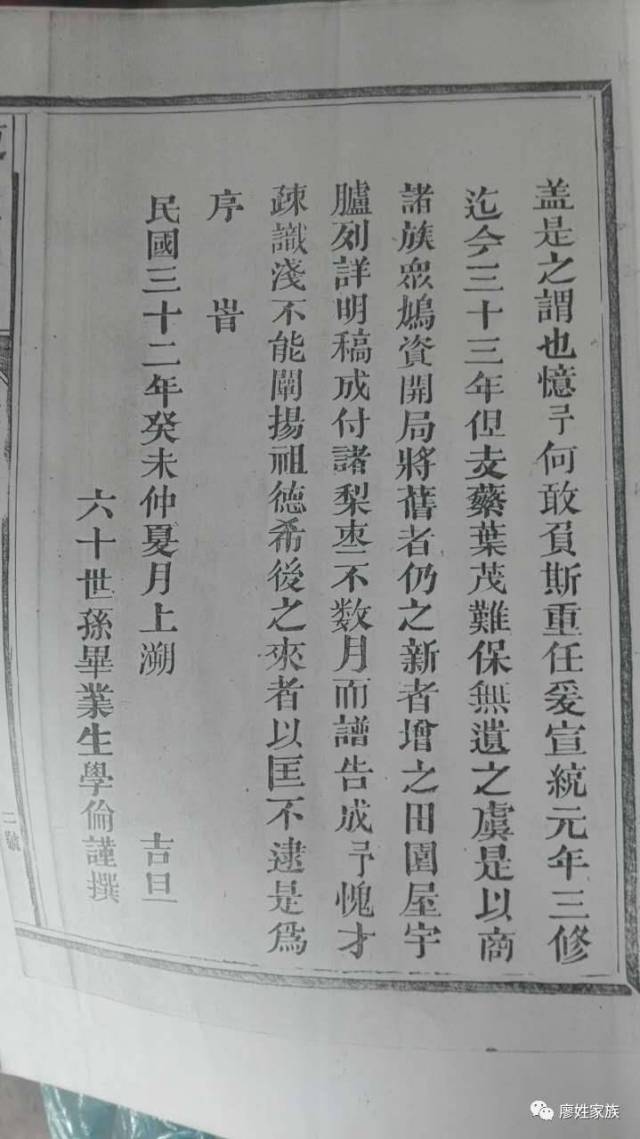 盖是之謂也憶予何敢負斯重任爰宣統元年三修
迄今三十三年但支蘩葉茂難保無遺之虞是以商
諸族眾鳩資開局將舊者仍之新者增之田園屋宇
臚列詳明稿成付諸梨枣不数月而譜告成予愧才
疎識淺不能闡揚祖德希後之來者以匡不逮是為
序 旹
民國三十二年癸未仲夏月上溯 吉旦
六十世孫畢業生學倫謹撰
二號
廖姓家族